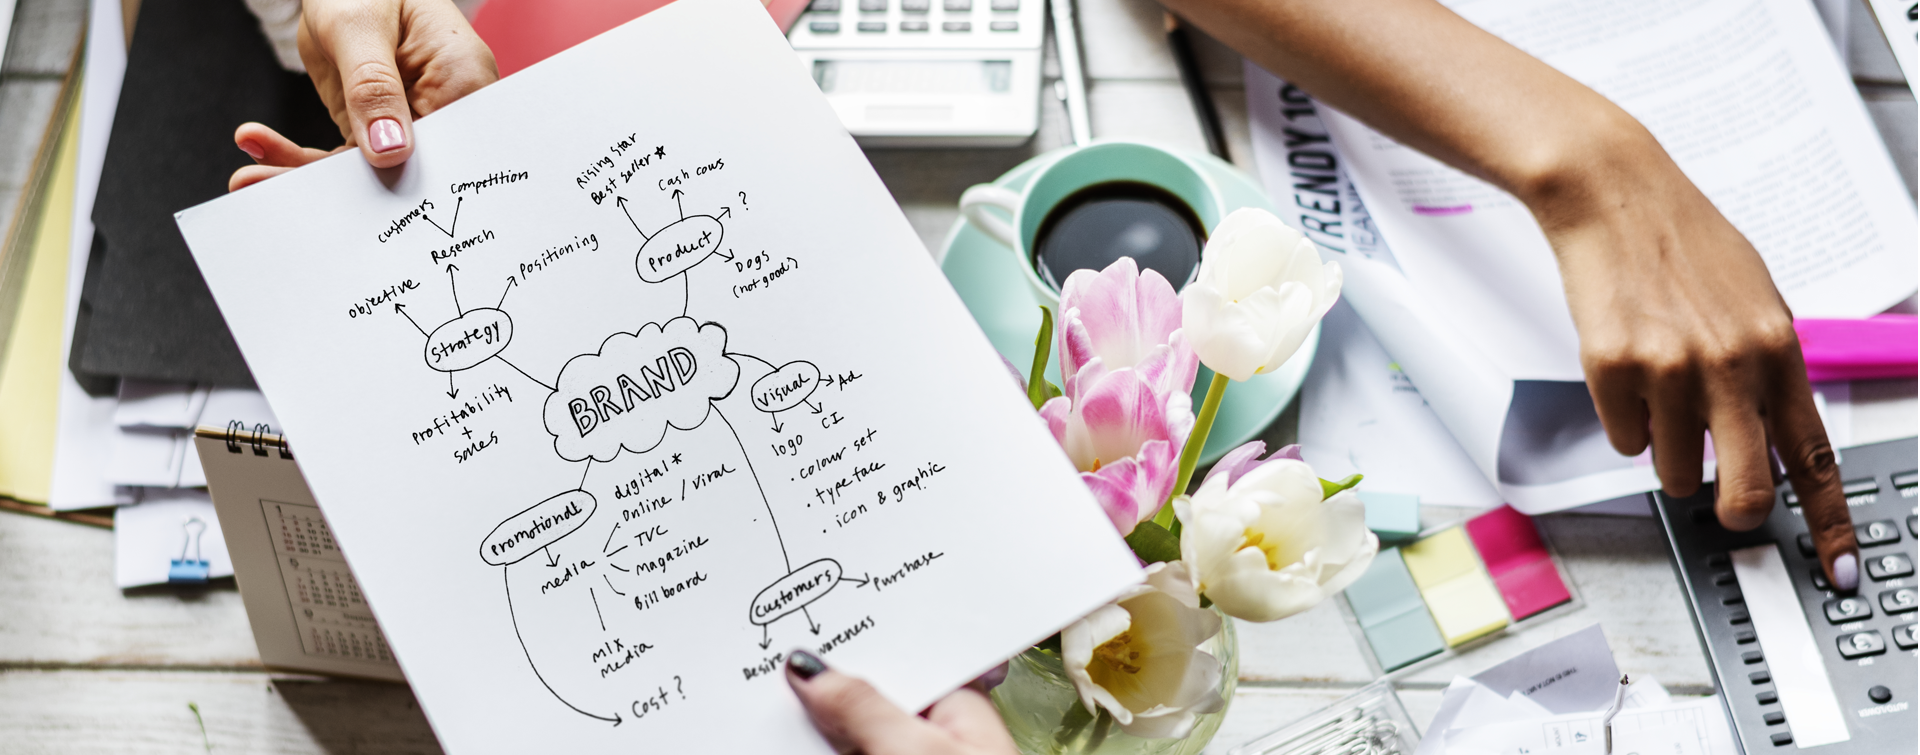 Competition
customers
Research
Positioning
Objective
Strategy
Profitability
+
sales
Rising Star
Best seller *
Cash cows
?
Product
Dogs
(not good)
BRAND
Visual
Ad
CI
logo
• colour set
• typeface
• icon & graphic
Promotional
media
digital *
Online / Viral
TVC
Magazine
Billboard
mix
media
Cost?
Customers
Purchase
wareness
Desire
TRENDY